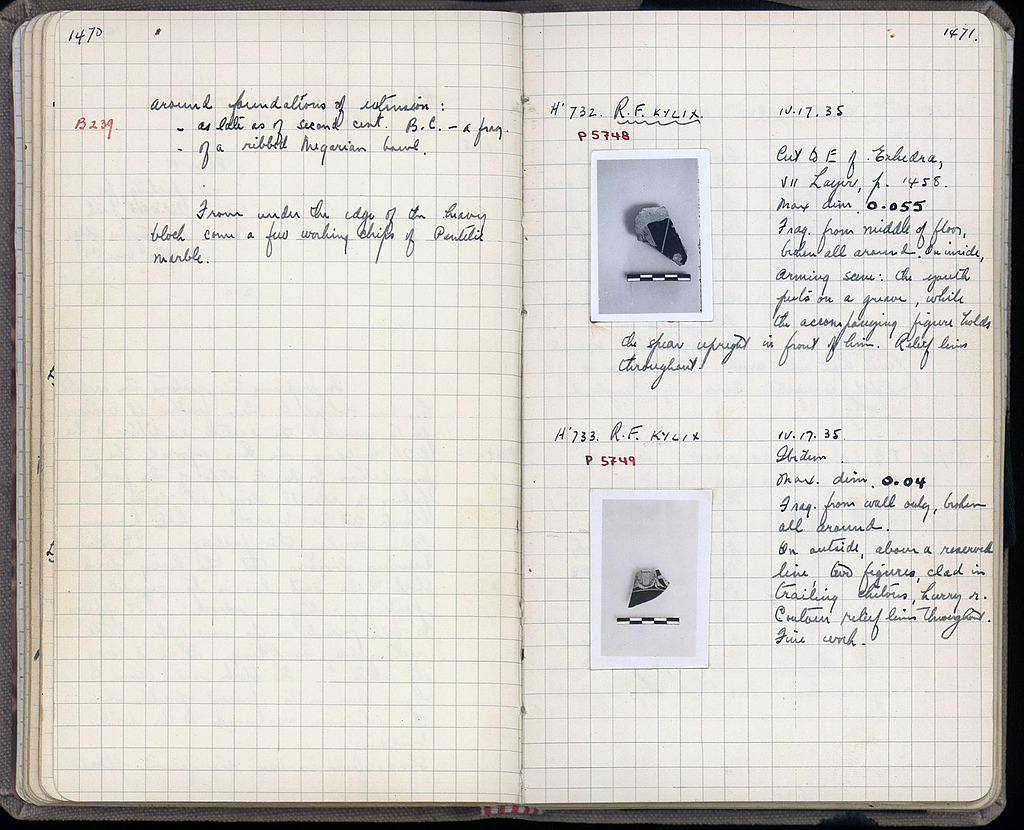 1470
around foundations of extension:
B 239.
- as late as of second cent. B.C. – a frag.
- of a ribbed Megarian bowl.
From under the edge of the heavy
block come a few working chips of Pentelic
marble.
1471.
H' 732. R.F. KYLIX.
P 5748
IV.17.35
Cut to E of Exhedra,
VII Layer, p. 1458.
Max dim. 0.055
Frag. from middle of floor,
broken all around. On inside,
arming scene: the youth
puts on a greave, while
the accompanying figure holds
the spear upright in front of him. Relief lines
throughout.
H' 733. R.F. KYLIX
P 5749
IV.17.35.
Ibidem
Max. dim. 0.04
Frag. from wall only, broken
all around.
On outside, above a reserved
line, two figures, clad in
trailing chitons, hurry r.
Contour relief lines throughout.
Fine work.